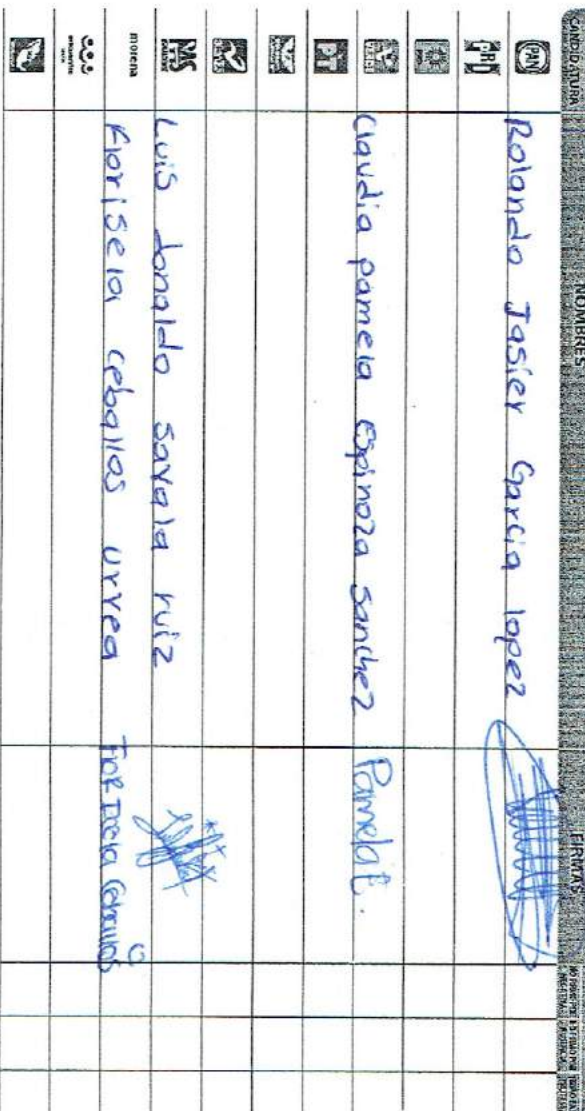 CANDIDATURA NOMBRES FIRMAS
PAN Rolando Jasier Garcia lopez
PRD
VERDE Claudia pamela Espinoza sanchez Pamela E.
PT
MS Luis donaldo savala ruiz
morena Florisela ceballos urrea